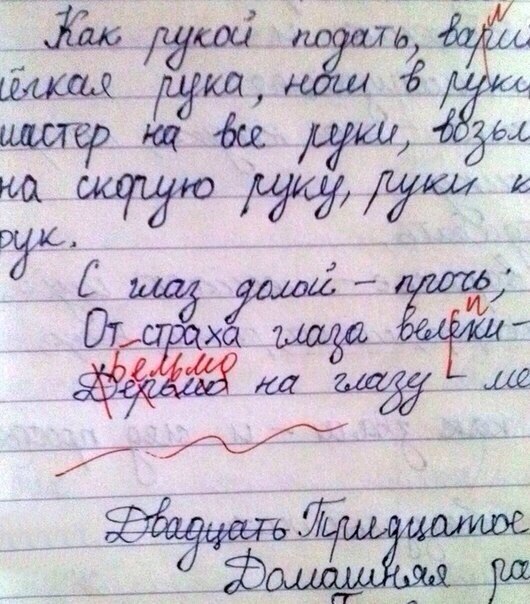 Как рукой подать, вари
лёгкая рука, ноги в руки
мастер на все руки, возьм
на скорую руку, руки к
рук.
С глаз долой – прочь;
От страха глаза велеки –
бельмо
Дерьмо на глазу – ме
Двадцать Тридцатое
Домашняя ра